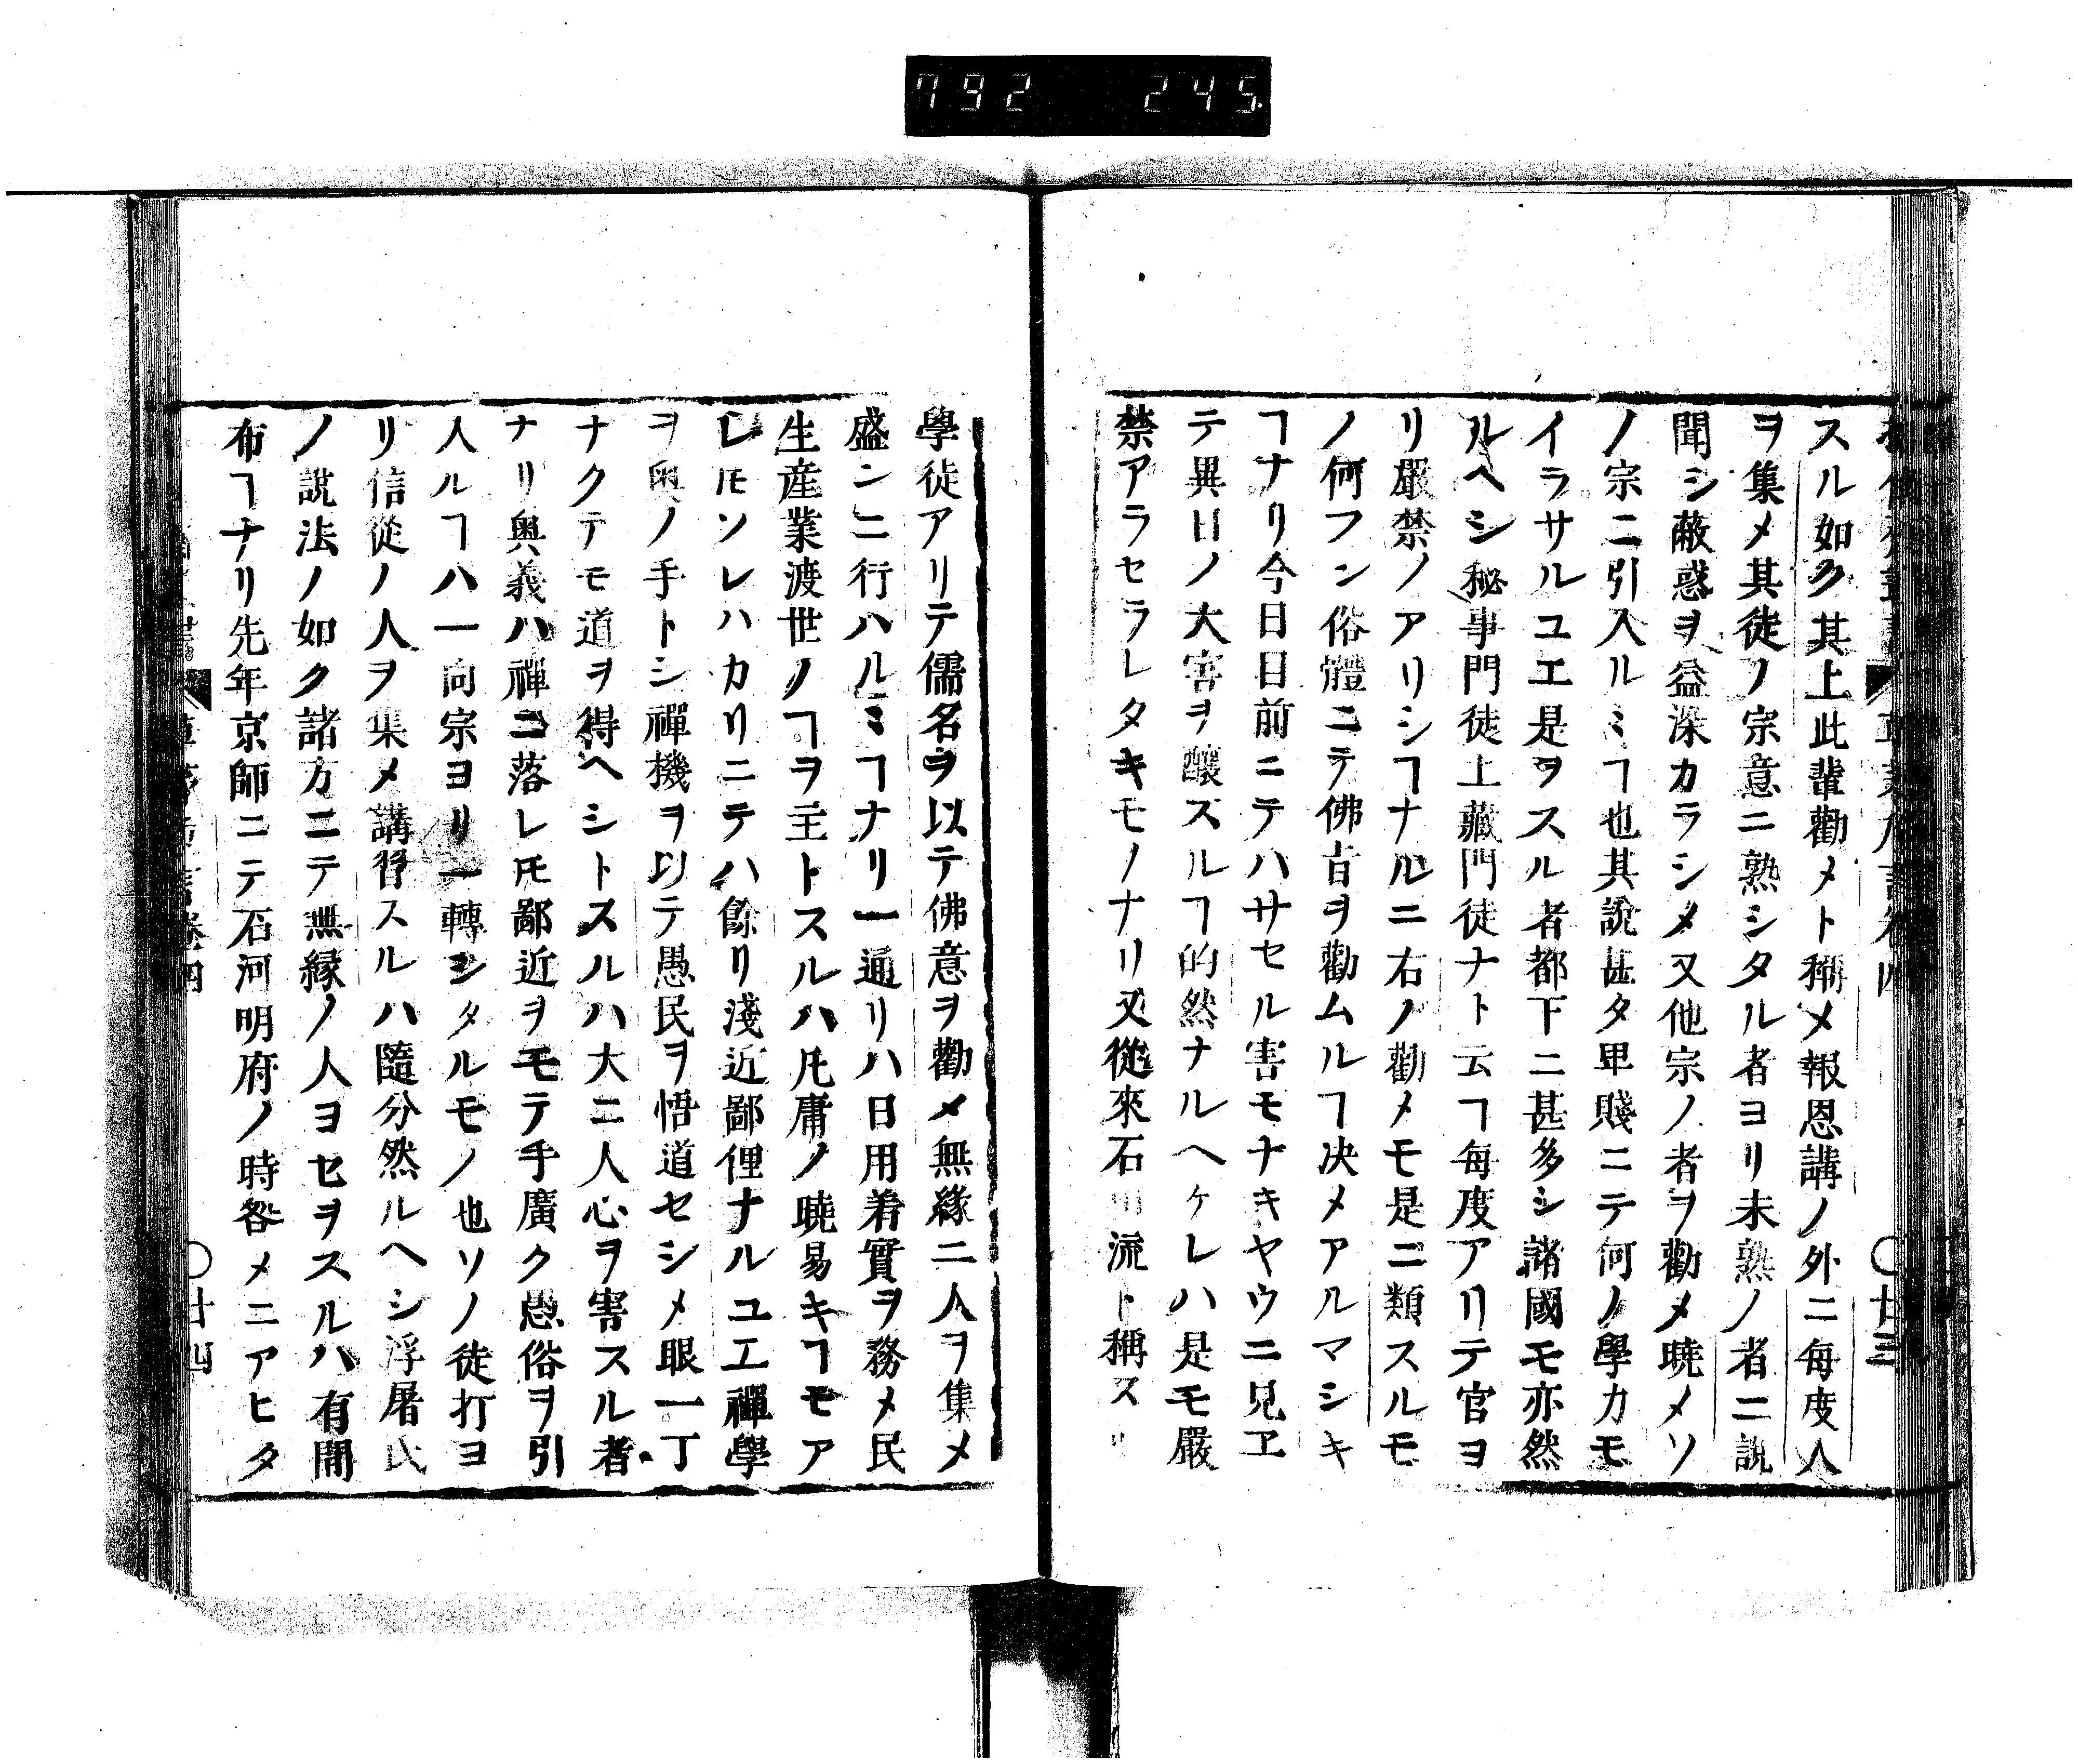 792 245
スル如ク其上此輩勸メト稱メ報恩講ノ外ニ毎度人
ヲ集メ其徒ノ宗意ニ熟シタル者ヨリ未熟ノ者ニ說
聞シ蔽惑ヲ益深カラシメ又他宗ノ者ヲ勸メ曉メソ
ノ宗ニ引入ルミヿ也其說甚タ卑賤ニテ何ノ學カモ
イラサルユエ是ヲスル者都下ニ甚多シ諸國モ亦然
ルヘシ秘事門徒土藏門徒ナト云ヿ毎度アリテ官ヨ
リ嚴禁ノアリシヿナルニ右ノ勸メモ是ニ類スルモ
ノ何フン俗體ニテ佛旨ヲ勸ムルヿ决メアルマシキ
ヿナリ今日日前ニテハサセル害モナキヤウニ見ヱ
テ異日ノ大害ヲ釀スルヿ的然ナルヘケレハ是モ嚴
禁アラセラレタキモノナリ又從來石川流ト稱スル
學徒アリテ儒名ヲ以テ佛意ヲ勸メ無緣ニ人ヲ集メ
盛ンニ行ハルミヿナリ一通リハ日用着實ヲ務メ民
生産業渡世ノヿヲ主トスルハ凡庸ノ曉易キヿモア
レ𪜈ソレハカリニテハ餘リ淺近鄙俚ナルユエ禪學
ヲ奥ノ手トシ禪機ヲ以テ愚民ヲ悟道セシメ眼一丁
ナクテモ道ヲ得ヘシトスルハ大ニ人心ヲ害スル者
ナリ奥義ハ禪ニ落レ𪜈鄙近ヲモテ手廣ク愚俗ヲ引
人ルヿハ一向宗ヨリ一轉シタルモノ也ソノ徒打ヨ
リ信從ノ人ヲ集メ講習スルハ隨分然ルヘシ浮屠氏
ノ說法ノ如ク諸方ニテ無緣ノ人ヨセヲスルハ有間
布ヿナリ先年京師ニテ石河明府ノ時咎メニアヒタ
〇廿四